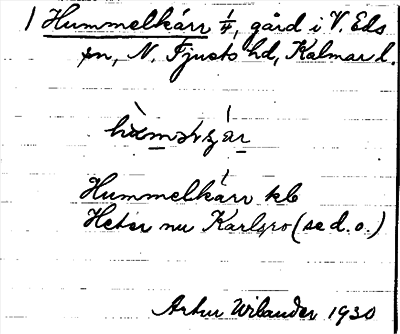 1 Hummelkärr 1/4, gård i V. Eds
sn, N. Tjusts hd, Kalmar l.
Hummelkärr kb
Heter nu Karlsro (se d. o.)
Artur Wilander 1930